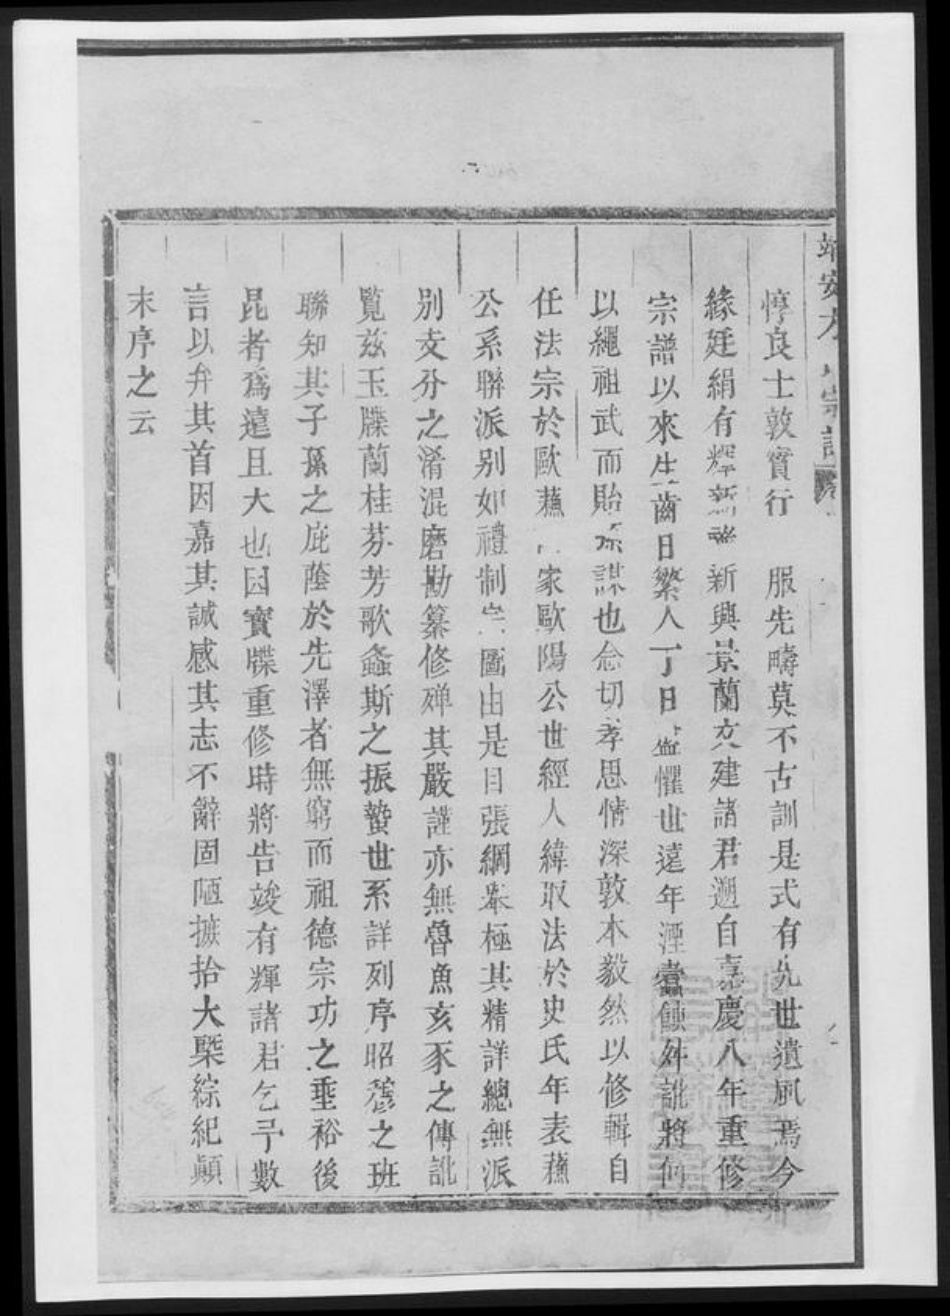 靖安 宗譜
惇良士敦實行 服先疇莫不古訓是式有先世遺風焉今
緣廷絹有輝新 新興景蘭 建諸君遡自嘉慶八年重修
宗譜以來生齒日繁人丁日 懼世遠年湮蠧蝕舛訛將何
以繩祖武而貽孫謀也念切孝思情深敦本毅然以修輯自
任法宗於歐蘇 家歐陽公世經人緯取法於史氏年表蘇
公系聯派别如禮制 圖由是目張綱舉極其精詳總無派
别支分之淆混磨勘纂修殫其嚴謹亦無魯魚亥豕之傳訛
覧兹玉牒蘭桂芬芳歌螽斯之振蟄世系詳列序昭穆之班
聯知其子孫之庇蔭於先澤者無窮而祖德宗功之垂裕後
昆者爲遠且大也因寶牒重修時將告竣有輝諸君乞予數
言以弁其首因嘉其誠感其志不辭固陋摭拾大槩綜紀顛
末序之云